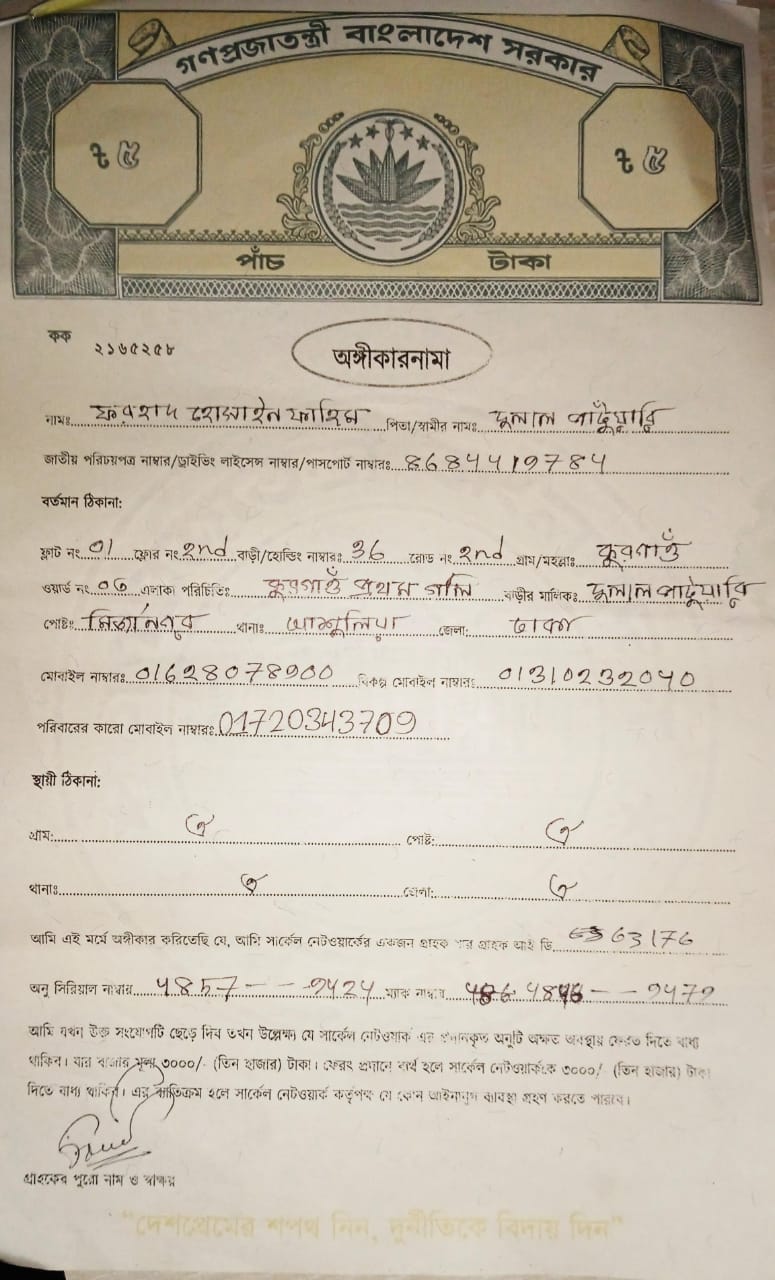 গণপ্রজাতন্ত্রী বাংলাদেশ সরকার
৳ ৫ ৳ ৫
পাঁচ টাকা
কক ২১৬৫২৫৮
অঙ্গীকারনামা
নামঃ ফরহাদ হোসাইন ফাহিম পিতা/স্বামীর নামঃ দুলাল পাটুয়ারি
জাতীয় পরিচয়পত্র নাম্বার/ড্রাইভিং লাইসেন্স নাম্বার/পাসপোর্ট নাম্বারঃ 8684419784
বর্তমান ঠিকানা:
ফ্লাট নং 01 ফ্লোর নং 2nd বাড়ী/হোল্ডিং নাম্বারঃ 36 রোড নং 2nd গ্রাম/মহল্লাঃ কুরগাঁও
ওয়ার্ড নং 06 এলাকা পরিচিতিঃ কুরগাঁও প্রথম গলি বাড়ীর মালিকঃ দুলাল পাটুয়ারি
পোষ্টঃ মির্জানগর থানাঃ আশুলিয়া জেলা: ঢাকা
মোবাইল নাম্বারঃ 01628078900 বিকল্প মোবাইল নাম্বারঃ 01310232040
পরিবারের কারো মোবাইল নাম্বারঃ 01720343709
স্থায়ী ঠিকানা:
গ্রাম: ঐ পোষ্ট: ঐ
থানাঃ ঐ জেলা: ঐ
আমি এই মর্মে অঙ্গীকার করিতেছি যে, আমি সার্কেল নেটওয়ার্কের একজন গ্রাহক যার গ্রাহক আই ডি 63176
অনু সিরিয়াল নাম্বার 4857 -- -9424 ম্যাক নাম্বার -- 9479
আমি যখন উক্ত সংযোগটি ছেড়ে দিব তখন উল্লেক্ষ্য যে সার্কেল নেটওয়ার্ক এর প্রদানকৃত অনুটি অক্ষত অবস্থায় ফেরত দিতে বাধ্য
থাকিব। যার বাজার মূল্য ৩০০০/- (তিন হাজার) টাকা। ফেরৎ প্রদানে ব্যর্থ হলে সার্কেল নেটওয়ার্ককে ৩০০০/- (তিন হাজার) টাকা
দিতে বাধ্য থাকিব। এর ব্যতিক্রম হলে সার্কেল নেটওয়ার্ক কর্তৃপক্ষ যে কোন আইনানুগ ব্যবস্থা গ্রহণ করতে পারবে।
গ্রাহকের পুরো নাম ও স্বাক্ষর
“দেশপ্রেমের শপথ নিন, দুর্নীতিকে বিদায় দিন”